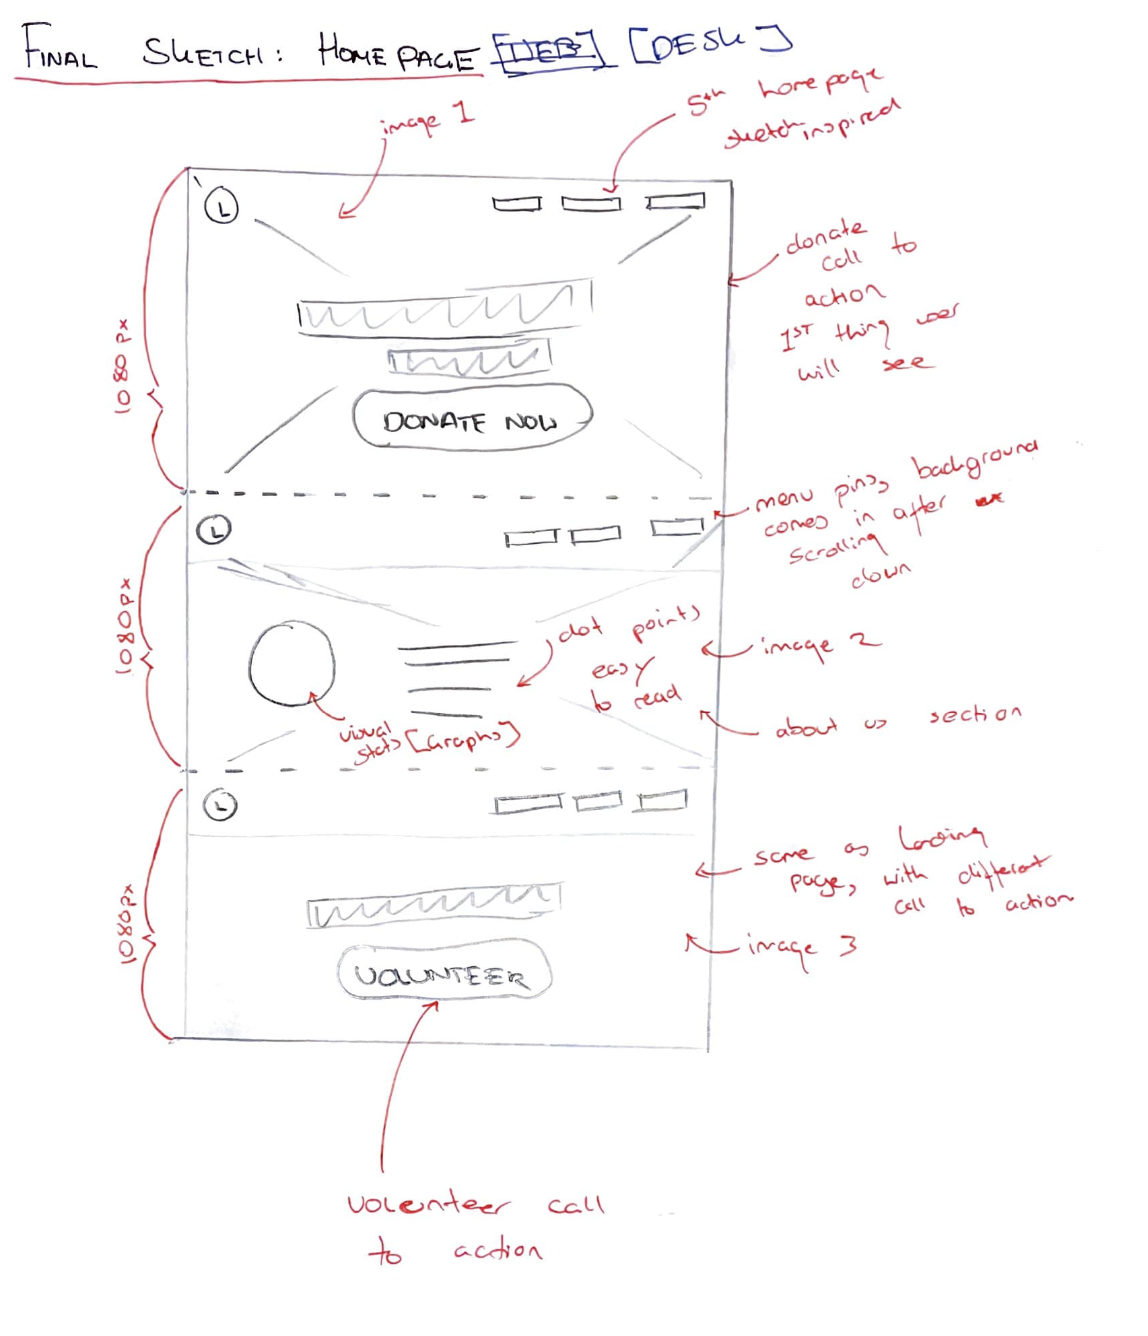 FINAL SKETCH: HOMEPAGE [WEB] [DESK]
image 1
5th homepage
sketch inspired
L
donate
call to
action
1ST thing user
will see
1080px
DONATE NOW
menu pins, background
comes in after
scrolling
down
L
1080px
dot points
easy
to read
image 2
visual
stats [Graphs]
about us section
L
same as landing
page, with different
call to action
1080px
image 3
VOLUNTEER
volenteer call
to action